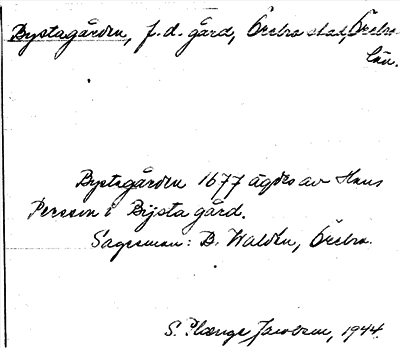 Bystagården, f.d. gård, Örebro stad, Örebro
län.
Bystagården 1677 ägdes av Hans
Persson i Bijsta gård.
Sagesman: B. Waldén, Örebro.
S. Plænge Jacobson, 1944